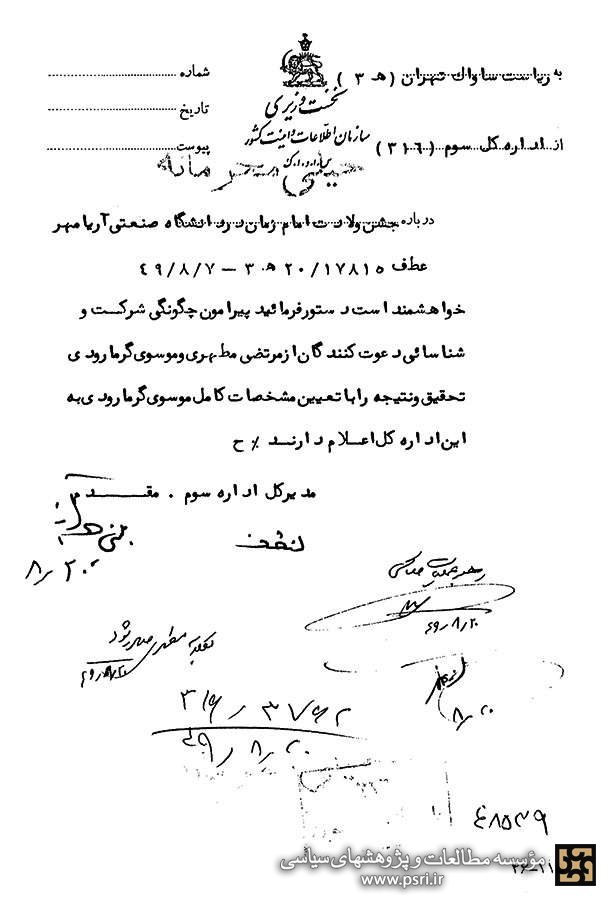 به ریاست ساواك تهران ( هـ ۳ )
شماره
نخست وزیری
تاریخ
سازمان اطلاعات و امنیت کشور
از اداره کل سوم ( ۳۱۶ )
پیوست
س.ا.و.ا.ك
خیلی محرمانه
درباره جشن ولادت امام زمان در دانشگاه صنعتی آریامهر
عطف ۲۰/۱۷۸۱۵ هـ ۳ – ۴۹/۸/۷
خواهشمند است دستور فرمائید پیرامون چگونگی شرکت و
شناسائی دعوت کنندگان از مرتضی مطهری و موسوی گرمارودی
تحقیق و نتیجه را با تعیین مشخصات کامل موسوی گرمارودی به
این اداره کل اعلام دارند ٪ ح
مدیرکل اداره سوم . مقدم
۸/۲۰
۴۹/۸/۲۰
۳۱۶/۳۷۶۲
۴۹/۸/۲۰
مؤسسه مطالعات و پژوهشهای سیاسی
www.psri.ir
۲۶-۱۱